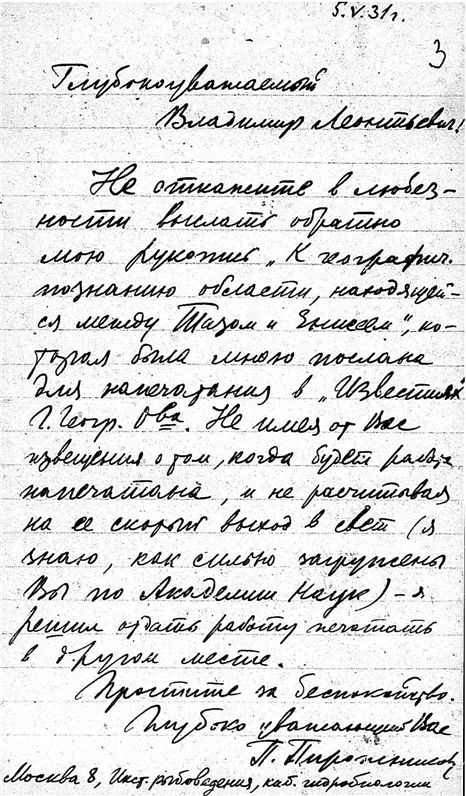 5.V.31г.
3
Глубокоуважаемый
Владимир Леонтьевич!
Не откажите в любез-
ности выслать обратно
мою рукопись „К географич.
познанию области, находящей-
ся между Тазом и Енисеем", ко-
торая была мною послана
для напечатания в „Известиях"
Г. Геогр. О-ва. Не имея от Вас
извещения о том, когда будет работа
напечатана, и не расчитывая
на ее скорый выход в свет (я
знаю, как сильно загружены
Вы по Академии Наук) – я
решил отдать работу печатать
в другом месте.
Простите за беспокойство.
Глубоко уважающий Вас
П. Пирожников
Москва 8, Инст. рыбоведения, каб. гидробиологии